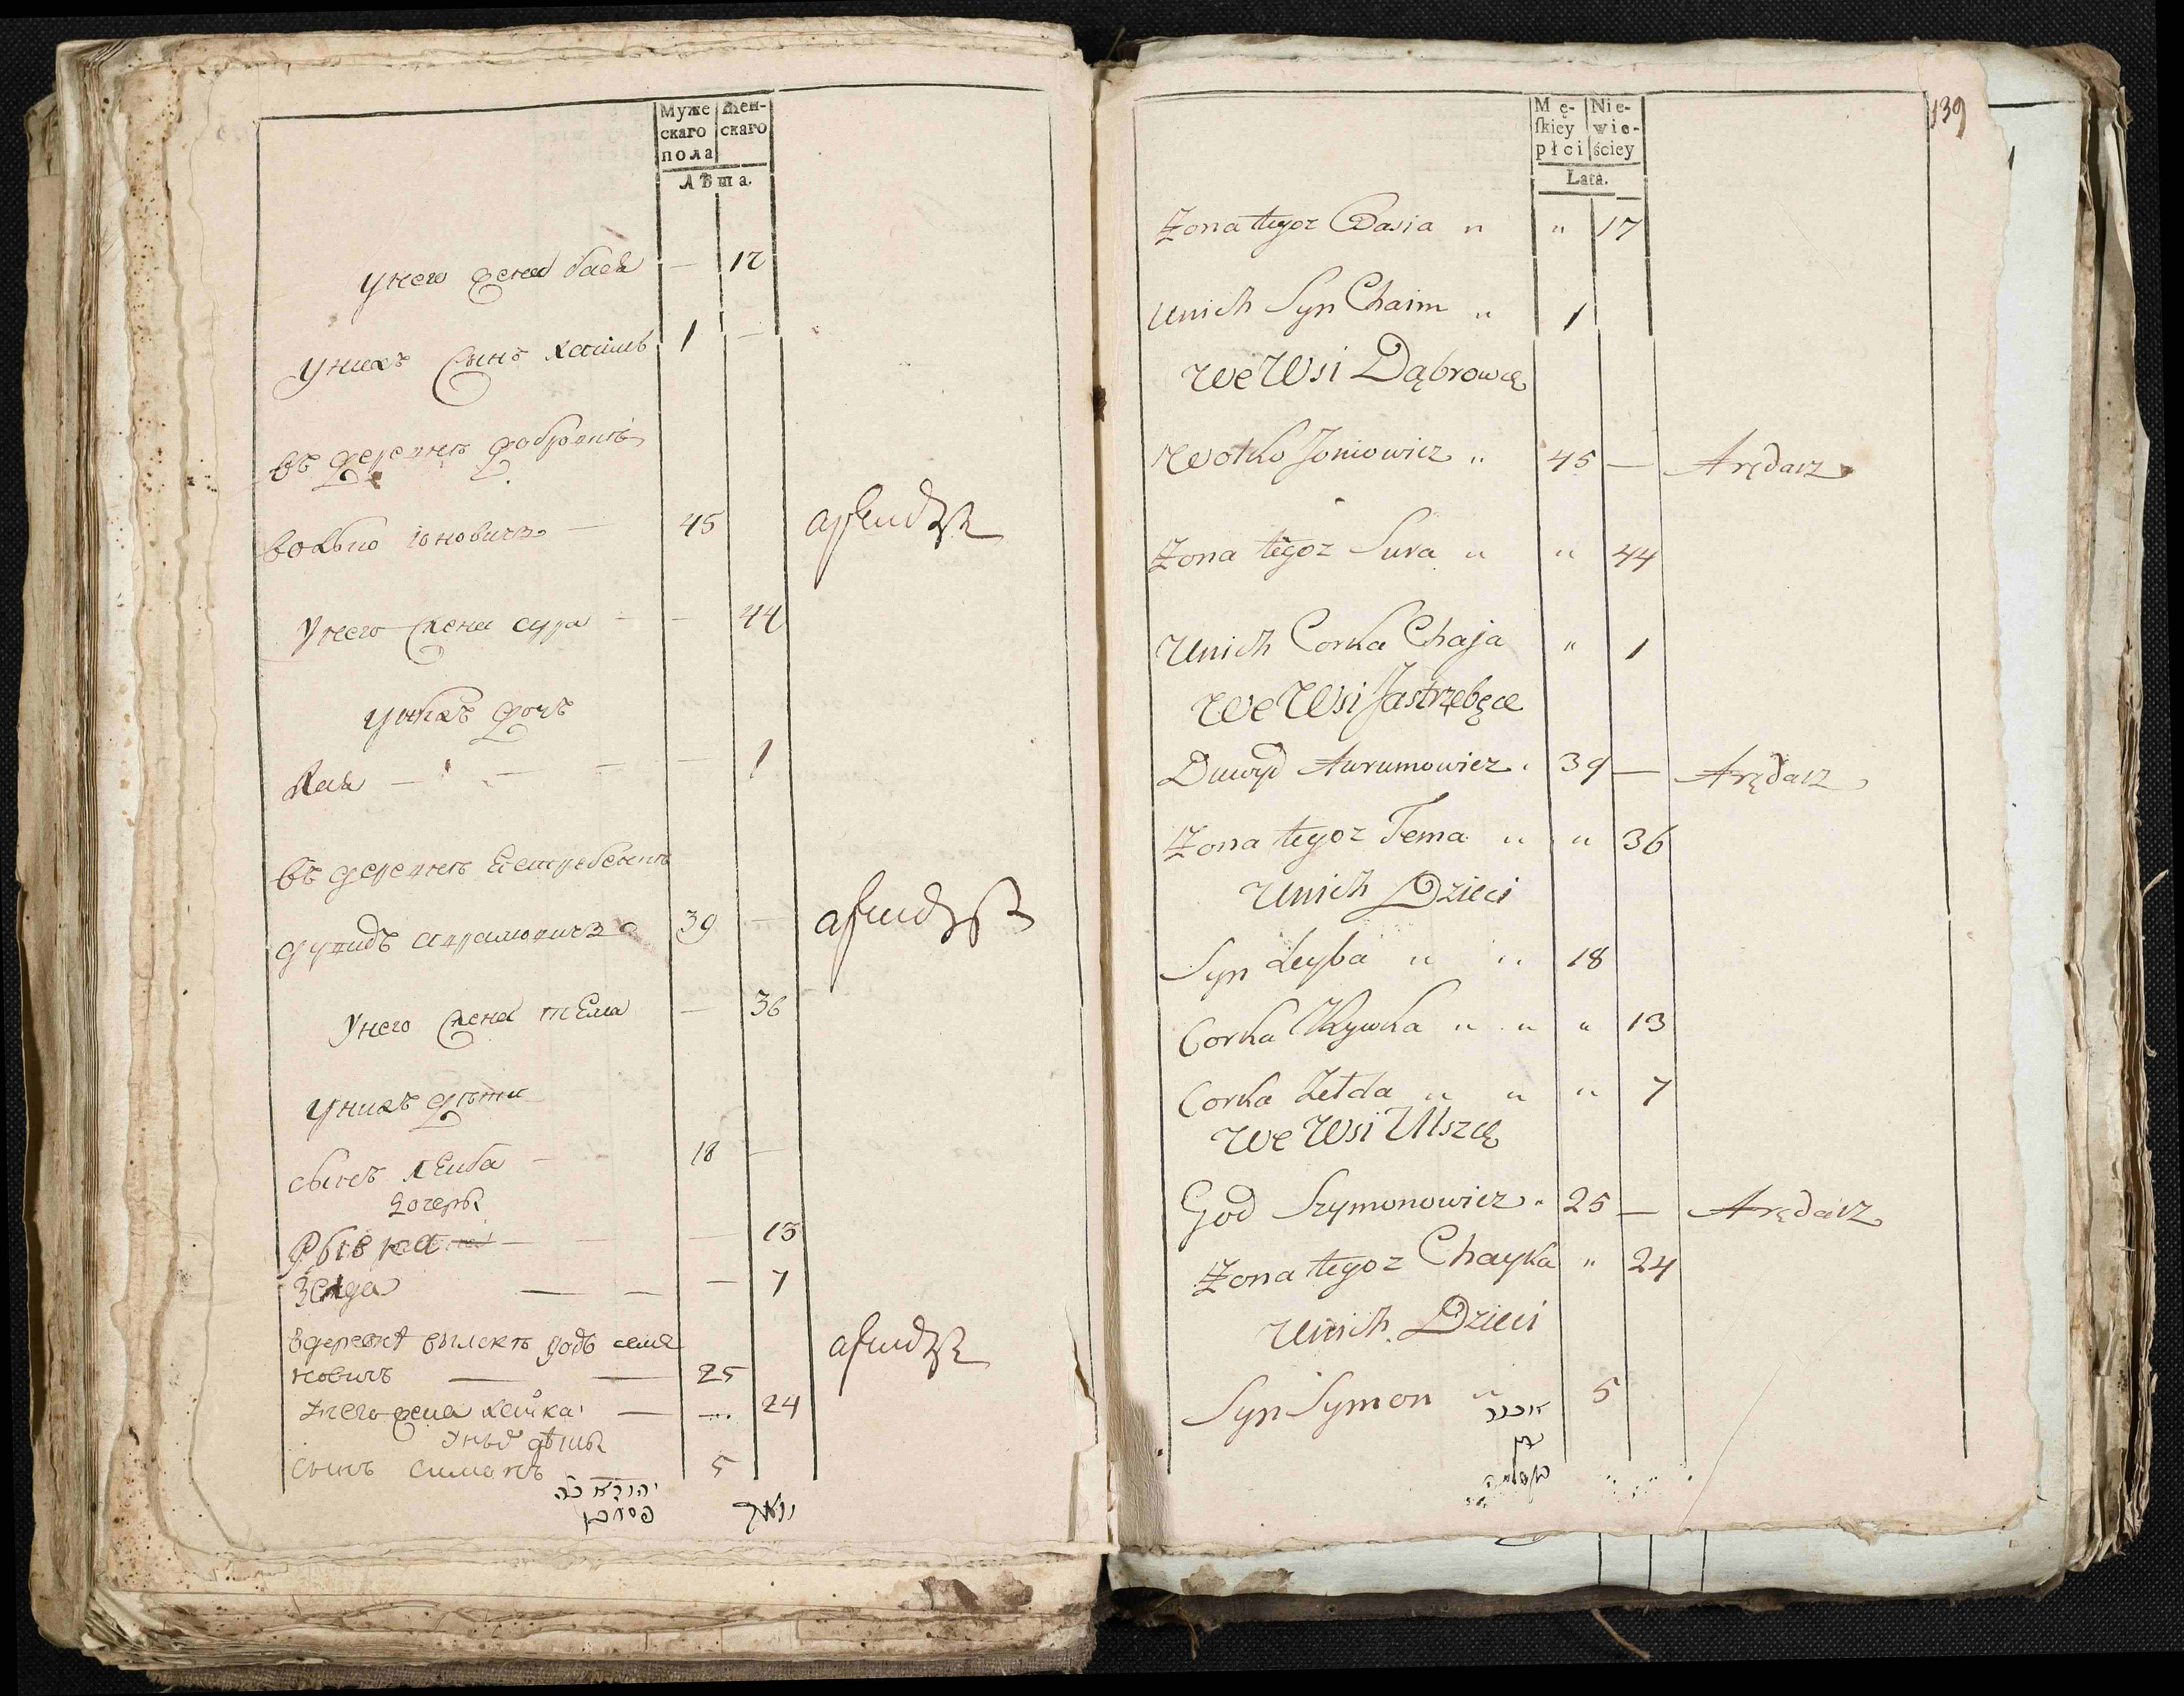 Муже
скаго
пола
Жен-
скаго
Лѣта.
У него жена бася — 17
У нихъ сынъ хаимъ 1 —
въ деревнѣ домбровѣ
волько юновичъ — 45
арендарь
У него жена сура — — 44
У нихъ дочь
хая — — — — 1
въ деревнѣ
дувидъ аврамовичъ 39 —
арендарь
У него жена тема — 36
У нихъ дѣти
сынъ леиба — 18 —
дочерь
Рывка — — — 13
Зелда — — — 7
вдеревнѣ годъ симо
новичъ — — 25
арендарь
У него жена хайка — — 24
У ных дѣти
сынъ симонъ 5
139
Mę-
ſkiey
płci
Nie-
wie-
ściey
Lata.
Żona tegoz Basia " " 17
Unich Syn Chaim " 1
We Wsi Dąbrowie
Wolko Joniowicz " 45 — Arędarz
Żona tegoz Sura " " 44
Unich Corka Chaja " 1
We Wsi Jastrzębce
Duwyd Awrumowicz " 39 — Arędarz
Żona tegoz Tema " " 36
Unich Dzieci
Syn Leyba " " 18
Corka Rywka " " " 13
Corka Zelda " " " 7
We Wsi
God Szymonowicz " 25 — Arędarz
Żona tegoz Chayka " 24
Unich Dzieci
Syn Symon " 5